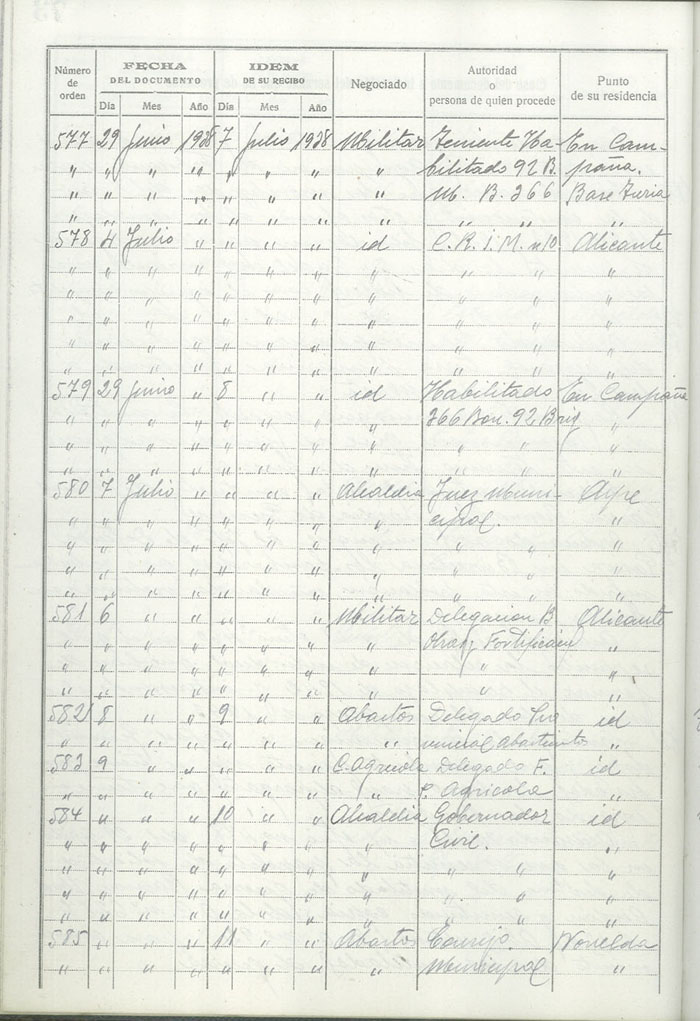 Número de orden FECHA DEL DOCUMENTO IDEM DE SU RECIBO Negociado Autoridad o persona de quien procede Punto de su residencia
Día Mes Año Día Mes Año
577 29 Junio 1938 7 Julio 1938 Militar Teniente Ha- En Cam-
" " " " " " " " bilitado 92 B. paña.
" " " " " " " " M. B. 366 Base Turia
" " " " " " " " " " "
578 4 Julio " " " " id C. R. I. M. nº 10 Alicante
" " " " " " " " " " "
" " " " " " " " " " "
" " " " " " " " " " "
" " " " " " " " " " "
" " " " " " " " " " "
579 29 Junio " 8 " " id Habilitado En Campaña
" " " " " " " " 366 Bon. 92 Brig "
" " " " " " " " " " "
" " " " " " " " " " "
580 7 Julio " " " " Alcaldia Juez Muni- Aspe
" " " " " " " " cipal. "
" " " " " " " " " " "
" " " " " " " " " " "
" " " " " " " " " " "
581 6 " " " " " Militar Delegacion B Alicante
" " " " " " " " Fortificación "
" " " " " " " " " "
" " " " " " " " " "
582 8 " " 9 " " Abastos Delegado Pro id
" " " " " " " " vincial Abastmtos "
583 9 " " " " " C. Agricola Delegado F. id
" " " " " " " " P. Agricola "
584 " " " 10 " " Alcaldia Gobernador id
" " " " " " " " Civil. "
" " " " " " " " " " "
" " " " " " " " " " "
" " " " " " " " " " "
585 " " " 11 " " Abastos Consejo Novelda
" " " " " " " " Municipal "